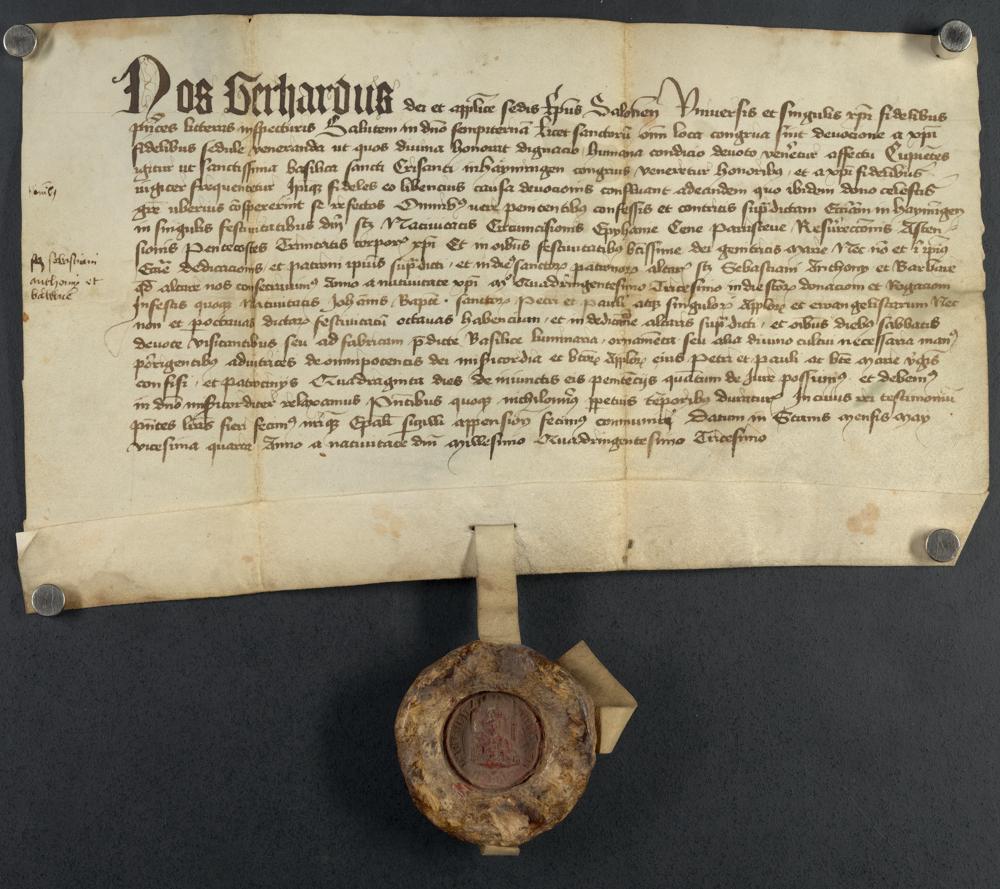 Nos Gerhardus dei et applice sedis Epus Salonen Universis et singulis xpi fidelibus
pntes litteras inspecturis Salutem in dno sempiternam Licet sanctoru om loca congrua sint devocione a xpi
fidelibus sedule veneranda ut quos divina honorat dignacio humana condicio devoto veneretur affectu Cupientes
igitur ut sanctissima basilica sancti Crisanti in Hayningen congruis veneretur honoribus et a xpi fidelibus
iugiter frequentetur Ipiq fideles eo libencius causa devocionis confluant ad eandem quo ibidem dono celestis
gre uberius conspexerint se refectos Omnibus vere penitentibus confessis et contritis supdictam Ecciam in Hayningen
in singulis festivitatibus dni scz Nativitatis Circumcisionis Epyhanie Cene Parasceve Resurrectionis Asten
sionis Penthecostes Trinitatis corporis xpi Et in oibus festivitatibus btissime dei genitricis marie Nec no et ipius
Eccie dedicacionis et patroni ipius supdicti et in die sanctor patronor altaris scz Sebastiani Anthony et Barbare
qd altare nos consecravimus Anno a nativitate xpi Quadringentesimo Tricesimo in die
In festis quoque Nativitatis Johannis Bapte sanctor Petri et Pauli atq singulor Applor et ewangelistarum Nec
non et p octavas dictar festivitatu octavas habencium et in dedicacione altaris supdicti et oibus diebus sabbatis
devote visitantibus seu ad fabricam pdicte Basilice luminaria ornamenta seu alia divino cultui necessaria manus
porrigentibus adiutrices de omnipotencis dei misericordia et btor Applor eius Petri et Pauli ac bte marie vginis
confisi et patrocinys Quadraginta dies de iniunctis eis penitencys quantum de Jure possumus et debemus
in dno misericorditer relaxamus Pntibus quoque nichilominus ppetuis temporibus duraturis In cuius rei testimonium
pntes lras fieri fecimus nriq Epalis sigilli appensione fecimus communiri Datum in mensis may
vicesima quarta Anno a nativitate dni millesimo Quadringentesimo Tricesimo
sebastiani
anthony et
barbare